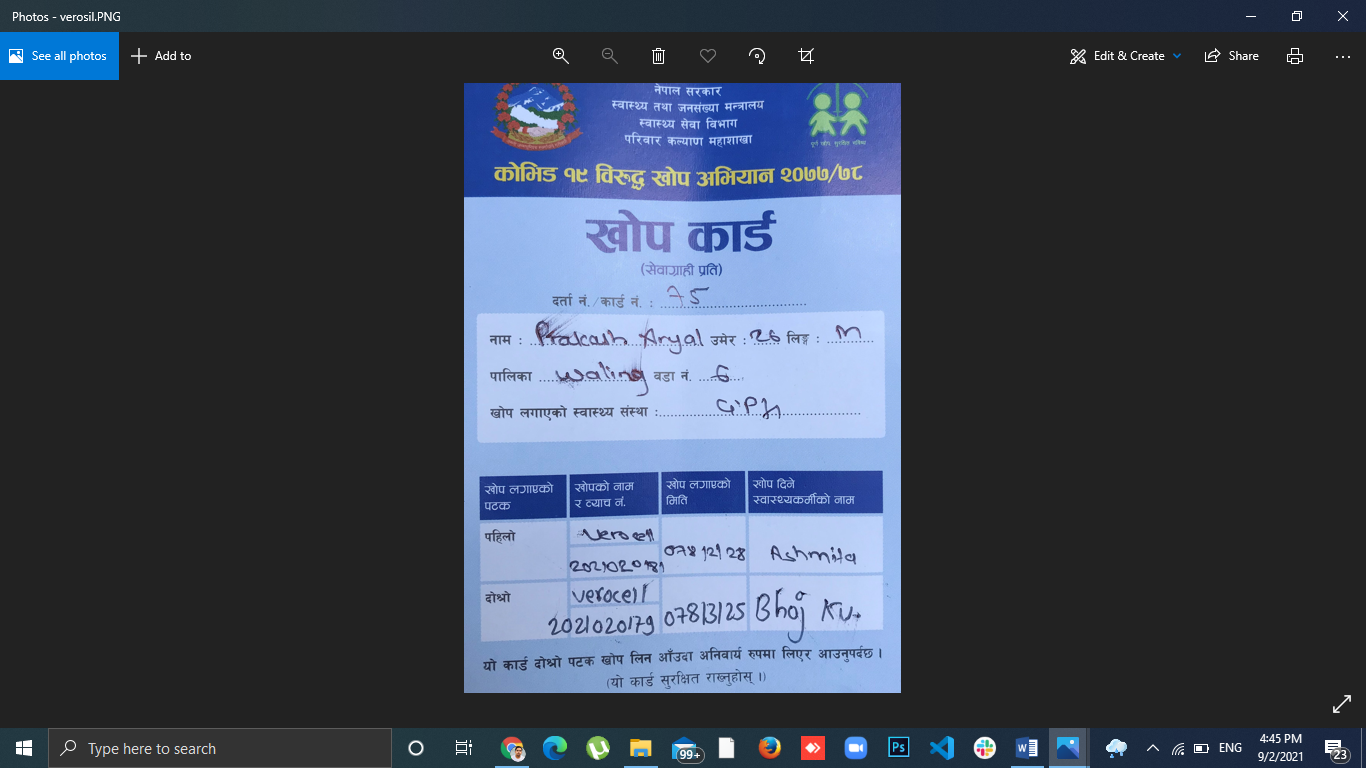 Photos - verosil.PNG
See all photos
Add to
Edit & Create
Share
नेपाल सरकार
स्वास्थ्य तथा जनसंख्या मन्त्रालय
स्वास्थ्य सेवा विभाग
परिवार कल्याण महाशाखा
कोभिड १९ विरुद्ध खोप अभियान २०७७/७८
खोप कार्ड
(सेवाग्राही प्रति)
दर्ता नं./कार्ड नं. : 75
नाम : Prakash Aryal उमेर : 26 लिङ्ग : M
पालिका Waling वडा नं. 6
खोप लगाएको स्वास्थ्य संस्था :
खोप लगाएको पटक
खोपको नाम र व्याच नं.
खोप लगाएको मिति
खोप दिने स्वास्थ्यकर्मीको नाम
पहिलो
Verocell
078/2/28
Ashmita
दोश्रो
verocell
2021020179
078/3/25
Bhoj Ku.
यो कार्ड दोश्रो पटक खोप लिन आँउदा अनिवार्य रुपमा लिएर आउनुपर्दछ ।
(यो कार्ड सुरक्षित राख्नुहोस् ।)
Type here to search
99+
ENG
4:45 PM
9/2/2021
23